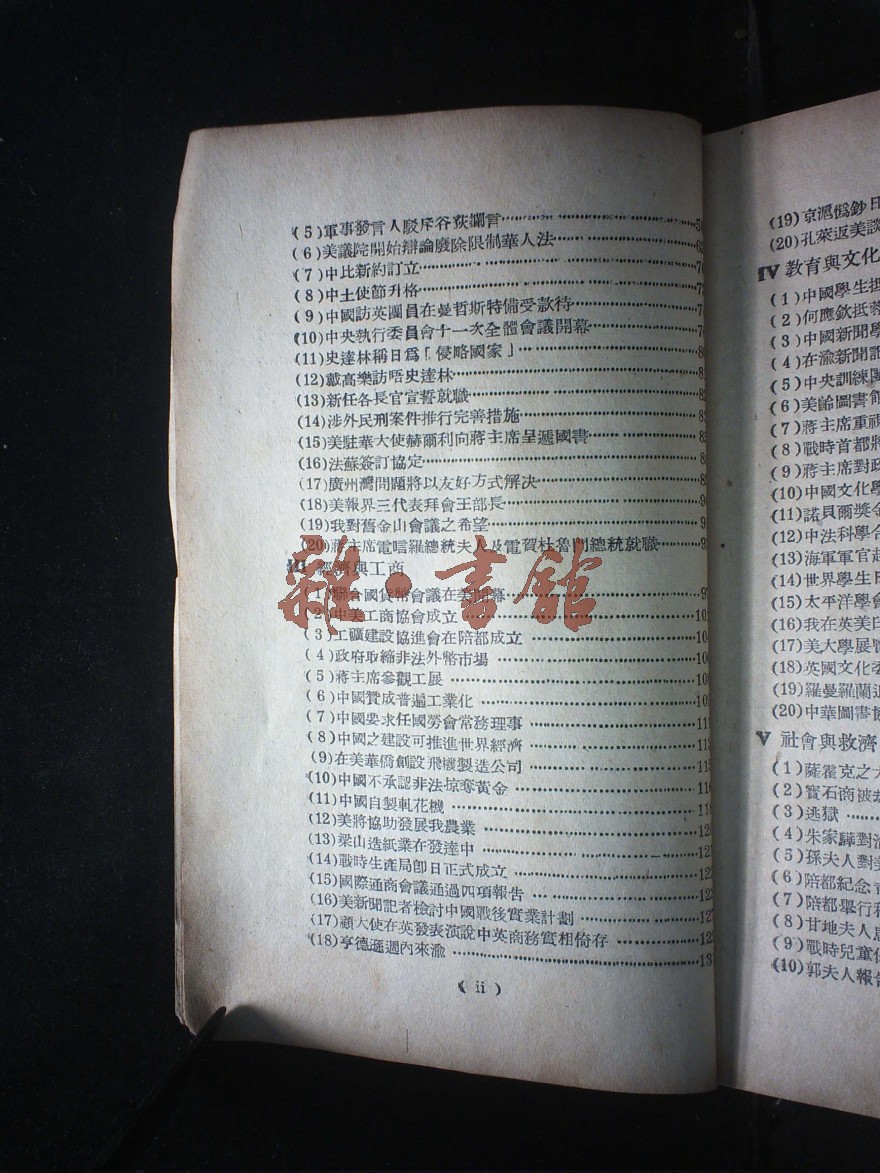 (5)軍事發言人駁斥谷荻讕言
(6)美議院開始辯論廢除限制華人法
(7)中比新約訂立
(8)中土使節升格
(9)中國訪英團員在曼哲斯特備受款待
(10)中央執行委員會十一次全體會議開幕
(11)史達林稱日爲「侵略國家」
(12)戴高樂訪唔史達林
(13)新任各長官宣誓就職
(14)涉外民刑案件推行完善措施
(15)美駐華大使赫爾利向蔣主席呈遞國書
(16)法蘇簽訂協定
(17)廣州灣問題將以友好方式解決
(18)美報界三代表拜會王部長
(19)我對舊金山會議之希望
(20)蔣主席電唁羅總統夫人及電賀杜魯門總統就職
III 經濟與工商
(1)聯合國貨幣會議在美開幕
(2)中美工商協會成立
(3)工礦建設協進會在陪都成立
(4)政府取締非法外幣市場
(5)蔣主席參觀工展
(6)中國贊成普遍工業化
(7)中國要求任國勞會常務理事
(8)中國之建設可推進世界經濟
(9)在美華僑創設飛機製造公司
(10)中國不承認非法掠奪黃金
(11)中國自製軋花機
(12)美將協助發展我農業
(13)梁山造紙業在發達中
(14)戰時生產局卽日正式成立
(15)國際通商會議通過四項報告
(16)美新聞記者檢討中國戰後實業計劃
(17)顧大使在英發表演說中英商務實相倚存
(18)亨德遜週內來渝
(ii)
(19)京滬僞鈔日
(20)孔萊返美談
IV 教育與文化
(1)中國學生
(2)何應欽抵
(3)中國新聞學
(4)在渝新聞記
(5)中央訓練團
(6)美齡圖書館
(7)蔣主席重視
(8)戰時首都將
(9)蔣主席對
(10)中國文化學
(11)諾貝爾獎金
(12)中法科學合
(13)海軍軍官赴
(14)世界學生日
(15)太平洋學會
(16)我在英美
(17)美大學展
(18)英國文化委
(19)羅曼羅蘭
(20)中華圖書協
V 社會與救濟
(1)薩霍克之
(2)寳石商被
(3)逃獄
(4)朱家驊對
(5)孫夫人對美
(6)陪都紀念
(7)陪都舉行
(8)甘地夫人
(9)戰時兒童保
(10)郭夫人報告
雜·書館